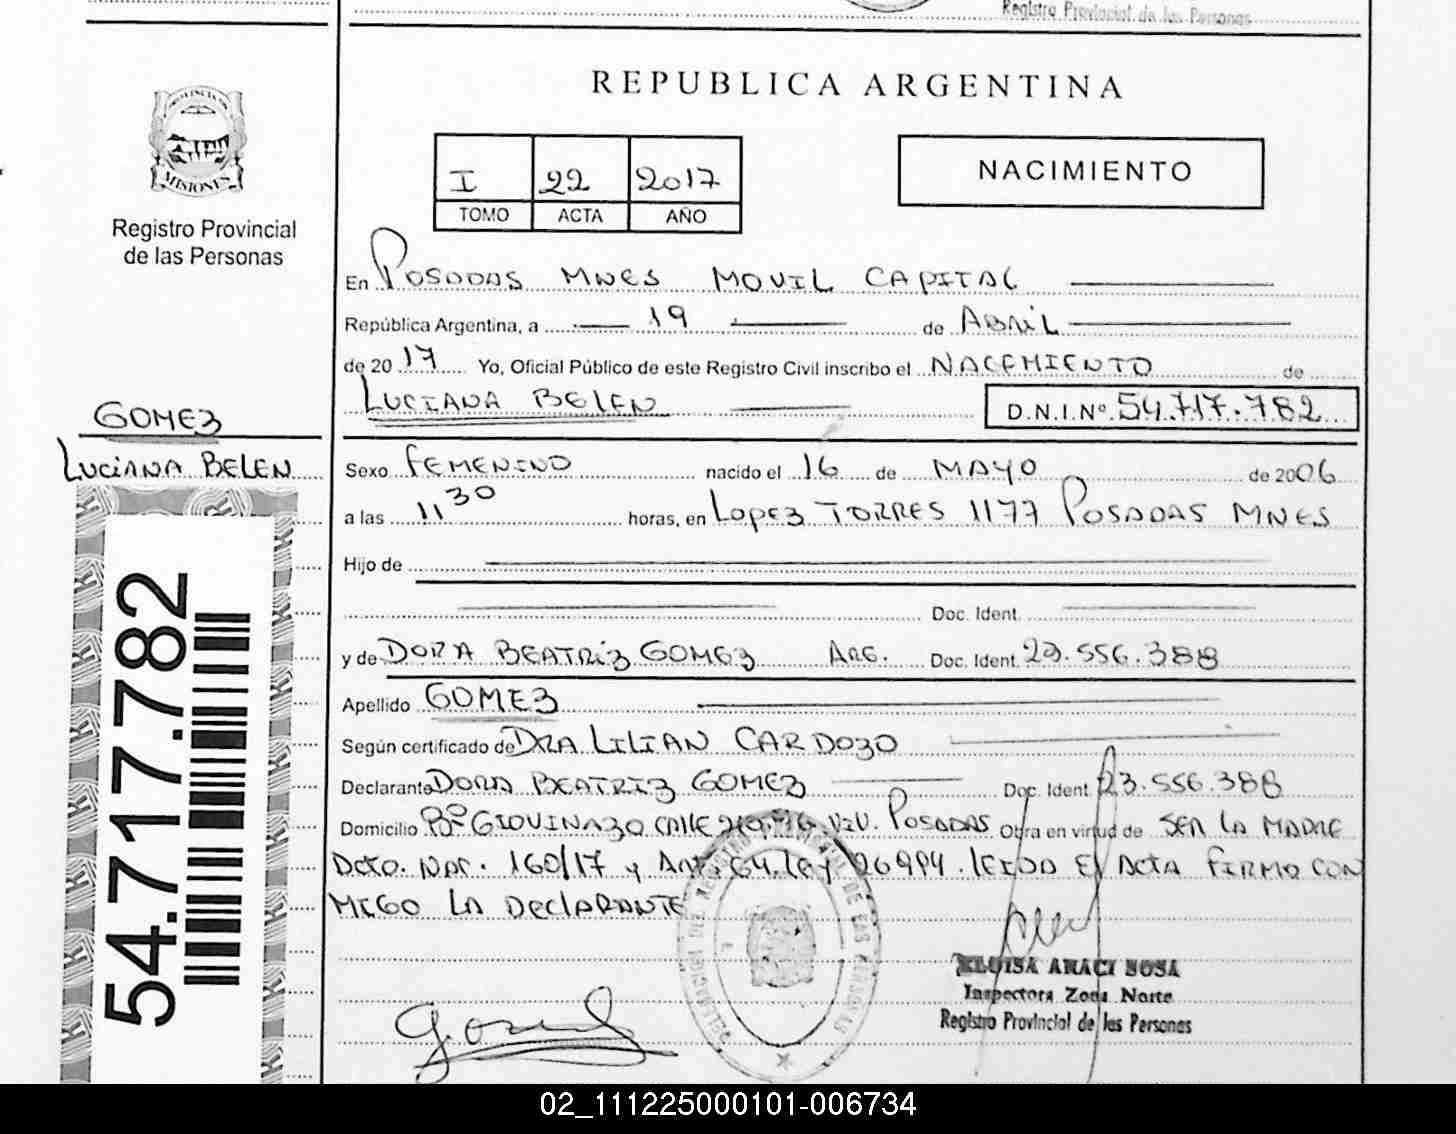 Registro Provincial de las Personas
REPUBLICA ARGENTINA
PROVINCIA DE
MISIONES
Registro Provincial
de las Personas
I 22 2017
TOMO ACTA AÑO
NACIMIENTO
En POSADAS MNES MOVIL CAPITAL
República Argentina, a 19 de ABRIL
de 2017 Yo, Oficial Público de este Registro Civil inscribo el NACEMIENTO de
LUCIANA BELEN D.N.I.Nº 54.717.782
GOMEZ
LUCIANA BELEN
54.717.782
Sexo FEMENINO nacido el 16 de MAYO de 2006
a las 11 30 horas, en LOPEZ TORRES 1177 POSADAS MNES
Hijo de
Doc. Ident.
y de DORA BEATRIZ GOMEZ ARG. Doc. Ident. 23.556.388
Apellido GOMEZ
Según certificado de DRA LILIAN CARDOZO
Declarante DORA BEATRIZ GOMEZ Doc. Ident. 23.556.388
Domicilio Bº GIOVINAZO CALLE VIV. POSADAS Obra en virtud de SER LA MADRE
DCTO. NAC. 160/17 y Art. 64. Ley 26994. LEIDA El ACTA FIRMO CON
MIGO LA DEClARANTE
ELOISA ARACI SOSA
Inspectora Zona Norte
Registro Provincial de las Personas
02_111225000101-006734